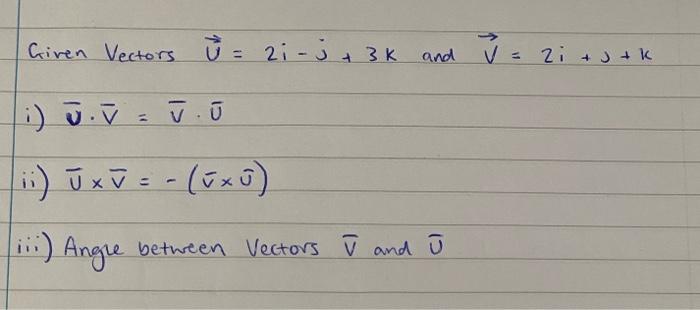 Given Vectors U⃗ = 2i - j + 3k and V⃗ = 2i + j + k
i) Ū . V̄ = V̄ . Ū
ii) Ū × V̄ = - (V̄ × Ū)
iii) Angle between Vectors V̄ and Ū